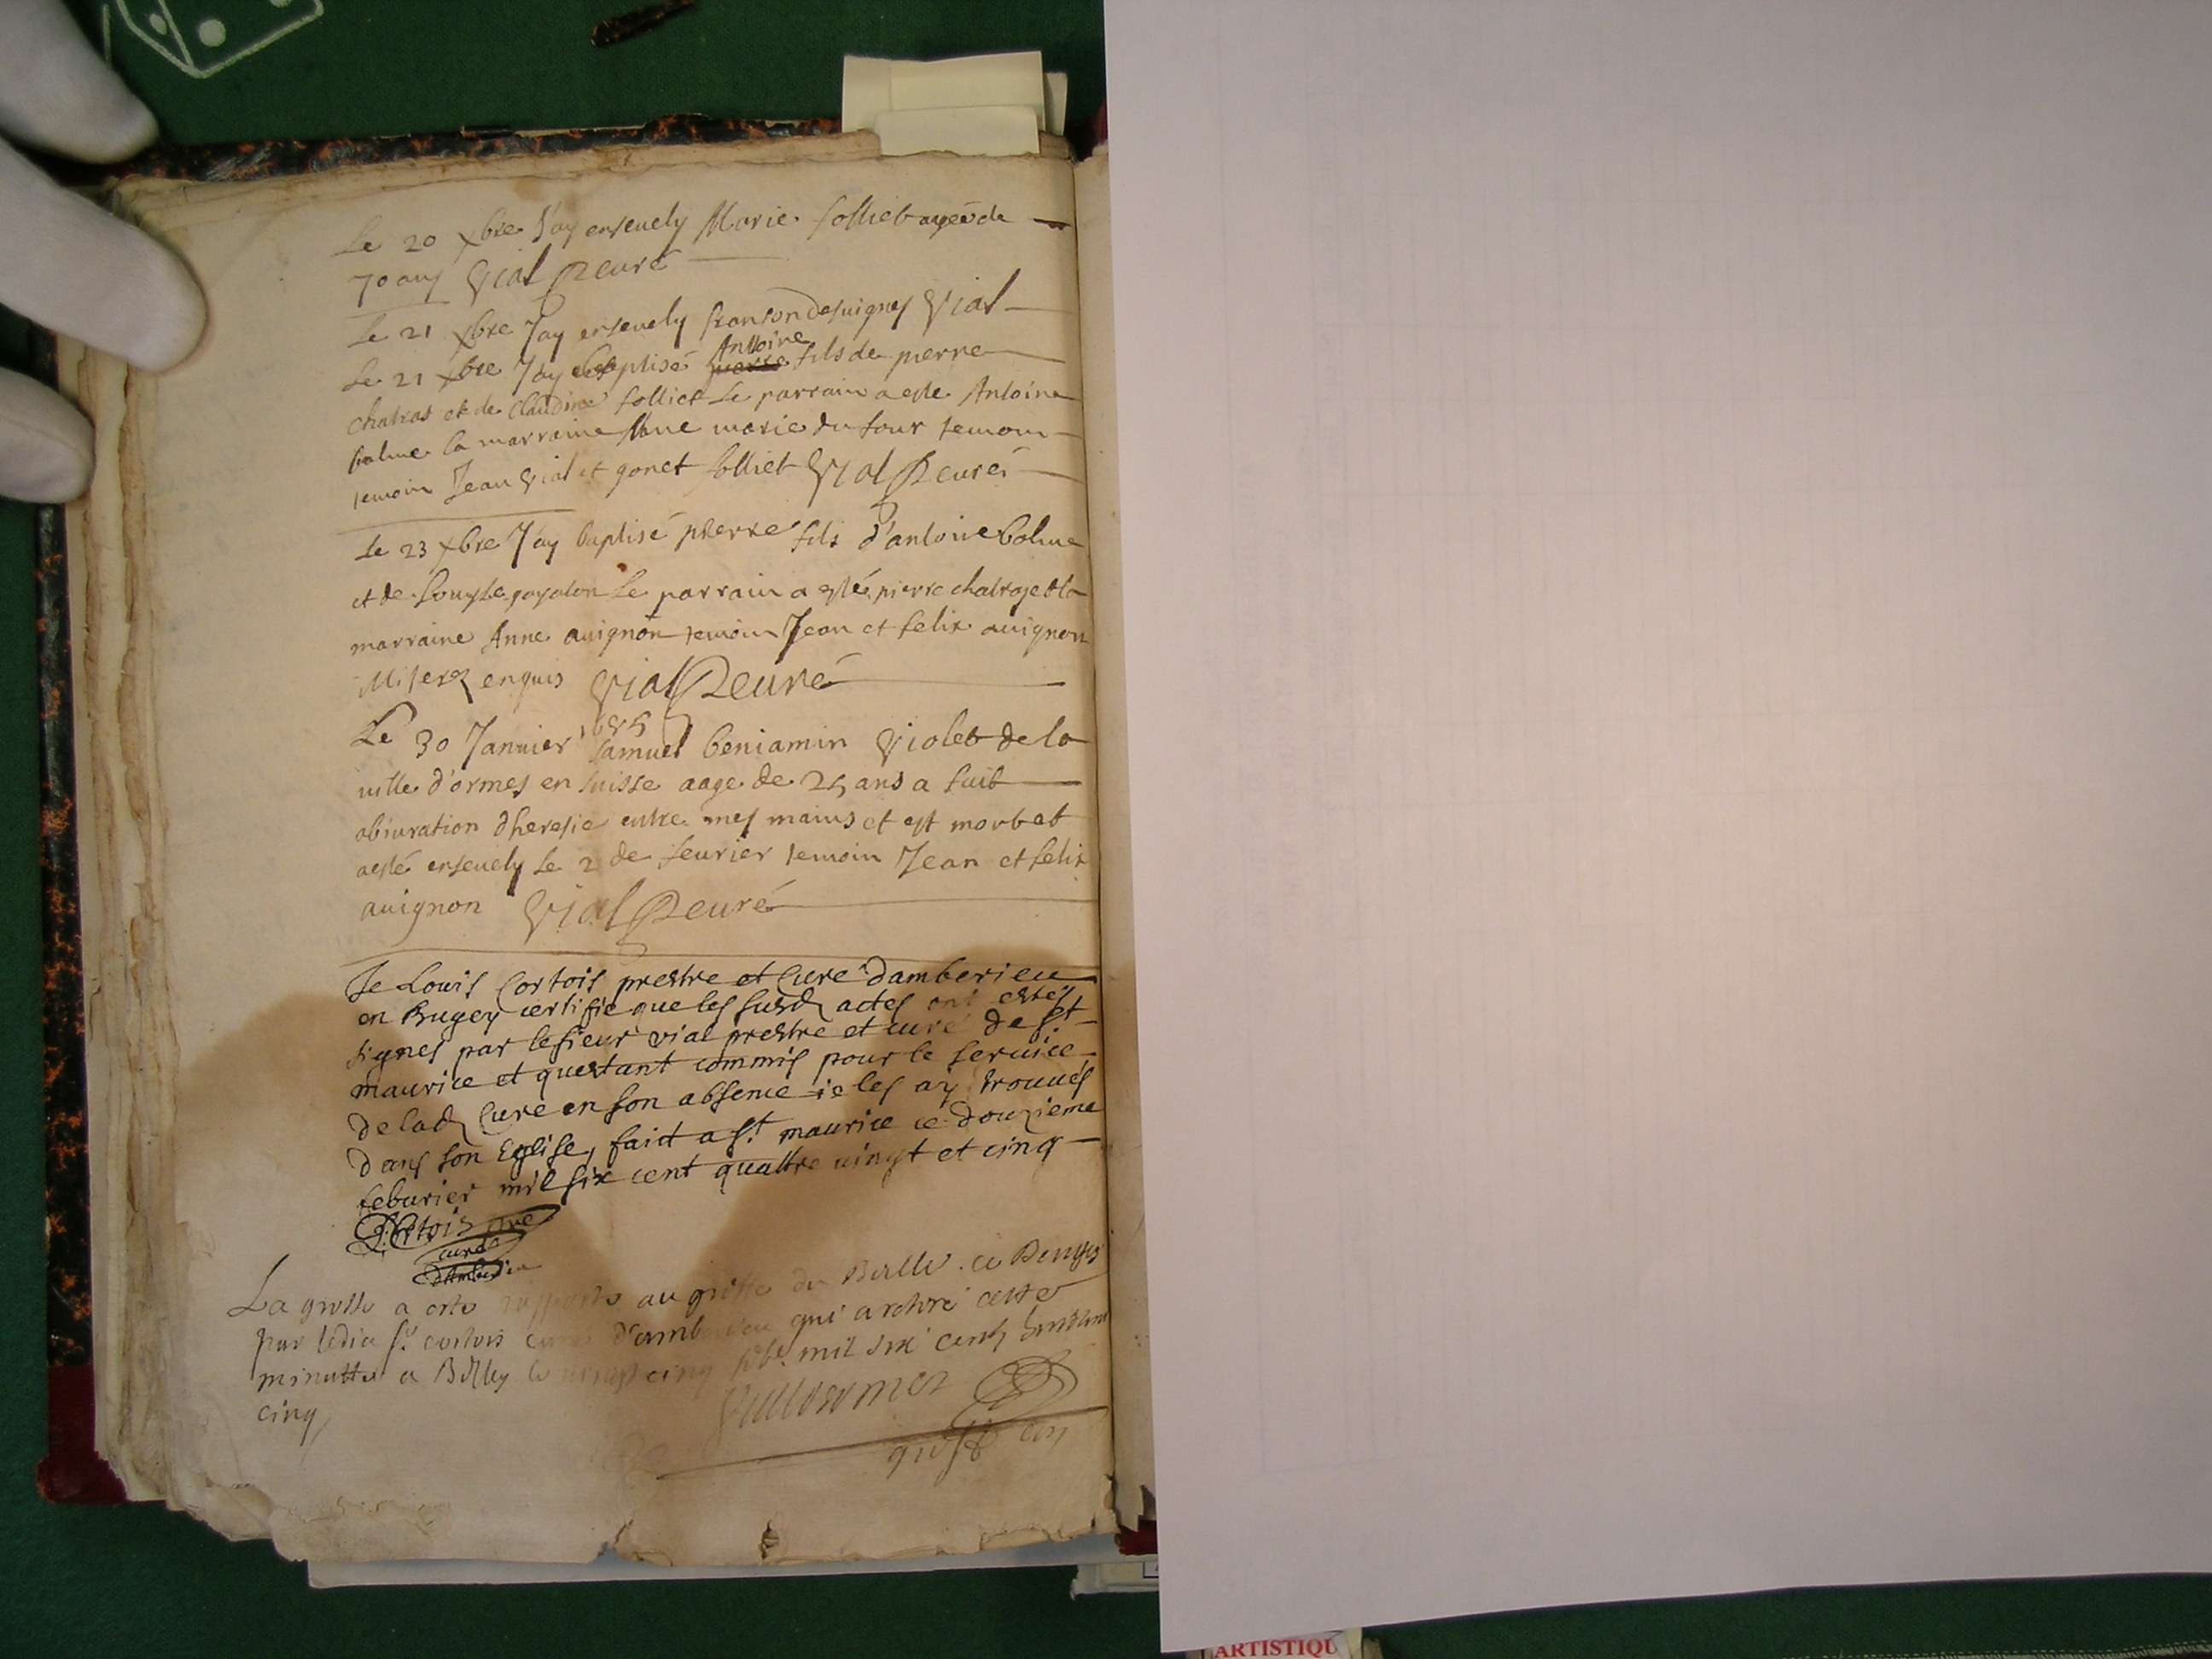 Le 20 xbre J'ay ensevely Marie folliet ageé de
70 ans Vial curé
Le 21 xbre J'ay ensevely franson desvignes Vial
Le 21 xbre J'ay baptisé Antoine fils de pierre
chatras et de Claudine folliet Le parrain a esté Antoine
balme la marraine Anne marie du four temoin
temoin Jean Vial et gonet folliet Vial curé
Le 23 xbre J'ay baptisé pierre fils d'antoine balme
et de Louyse le parrain a esté pierre chatras et la
marraine Anne avignon temoin Jean et felix avignon
enquis Vial curé
Le 30 Janvier 1685 Samuel beniamin Violet de la
ville d'ormes en suisse aagé de 25 ans a fait
abiuration d'heresie entre mes mains et est mort et
a esté ensevely le 2 de fevrier temoin Jean et felix
avignon Vial curé
Je Louis Cortois prestre et Curé damberieu
en Bugey certifie que les susd actes ont estés
signes par le sieur vial prestre et curé de St
maurice et questant commis pour le service
de lad Cure en son absence ie les ay trouvés
dans son Eglise, fait a St maurice ce douzieme
feburier mil six cent quattre vingt et cinq
Cortois
curé
d'Amberieu
La grosse a esté au greffe du Ballie. ce Bugey
par ledict Sr cortois curé d'amberieu qui a retiré cette
minutte a Belley le vingt cinq mil six cents
cinq
ARTISTIQU